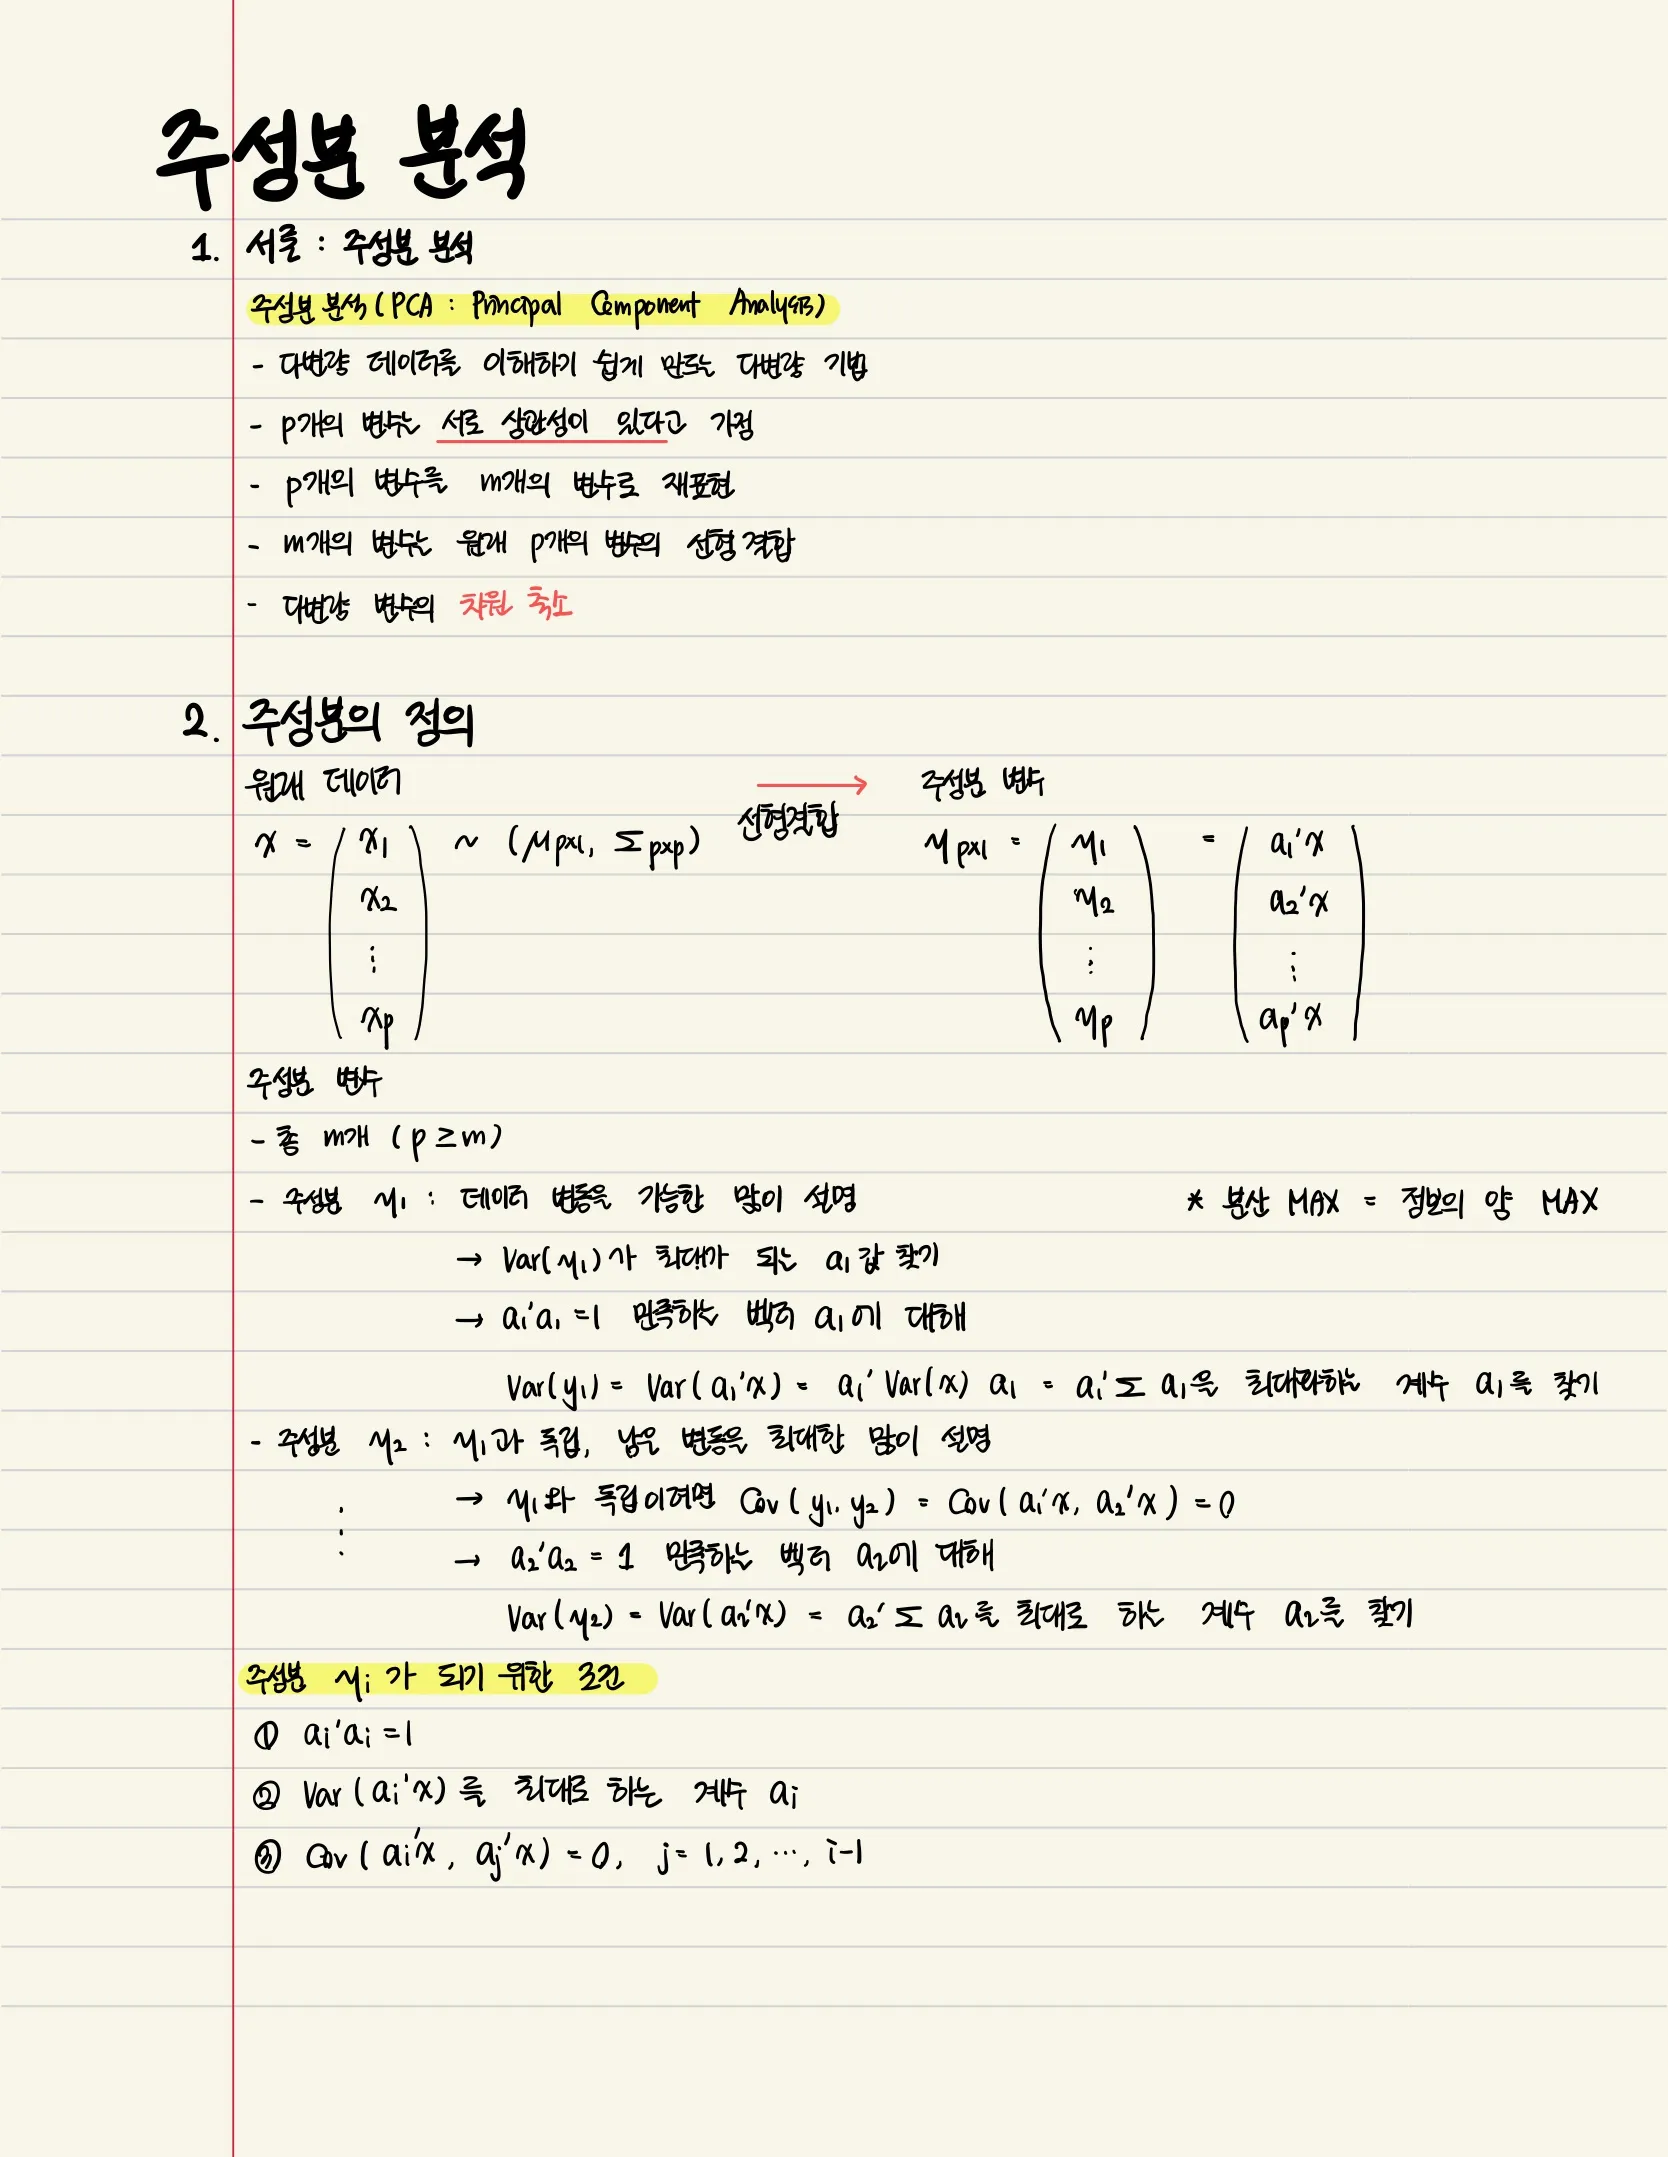 주성분 분석
1. 서론 : 주성분 분석
주성분 분석 (PCA : Principal Component Analysis)
- 다변량 데이터를 이해하기 쉽게 만드는 다변량 기법
- p개의 변수는 서로 상관성이 있다고 가정
- p개의 변수를 m개의 변수로 재표현
- m개의 변수는 원래 p개의 변수의 선형 결합
- 다변량 변수의 차원 축소
2. 주성분의 정의
원래 데이터 → 선형결합 주성분 변수
x = ( x1 x2 ⋮ xp ) ~ (μpx1, Σpxp) ypx1 = ( y1 y2 ⋮ yp ) = ( a1'x a2'x ⋮ ap'x )
주성분 변수
- 총 m개 ( p ≥ m )
- 주성분 y1 : 데이터 변동을 가능한 많이 설명 * 분산 MAX = 정보의 양 MAX
→ Var(y1)가 최대가 되는 a1값 찾기
→ a1'a1 = 1 만족하는 벡터 a1에 대해
Var(y1) = Var(a1'x) = a1' Var(x) a1 = a1' Σ a1을 최대화하는 계수 a1를 찾기
- 주성분 y2 : y1과 독립, 남은 변동을 최대한 많이 설명
⋮ → y1와 독립이려면 Cov(y1, y2) = Cov(a1'x, a2'x) = 0
→ a2'a2 = 1 만족하는 벡터 a2에 대해
Var(y2) = Var(a2'x) = a2' Σ a2를 최대로 하는 계수 a2를 찾기
주성분 yi가 되기 위한 조건
① ai'ai = 1
② Var(ai'x)를 최대로 하는 계수 ai
③ Cov(ai'x, aj'x) = 0, j = 1, 2, ⋯, i-1